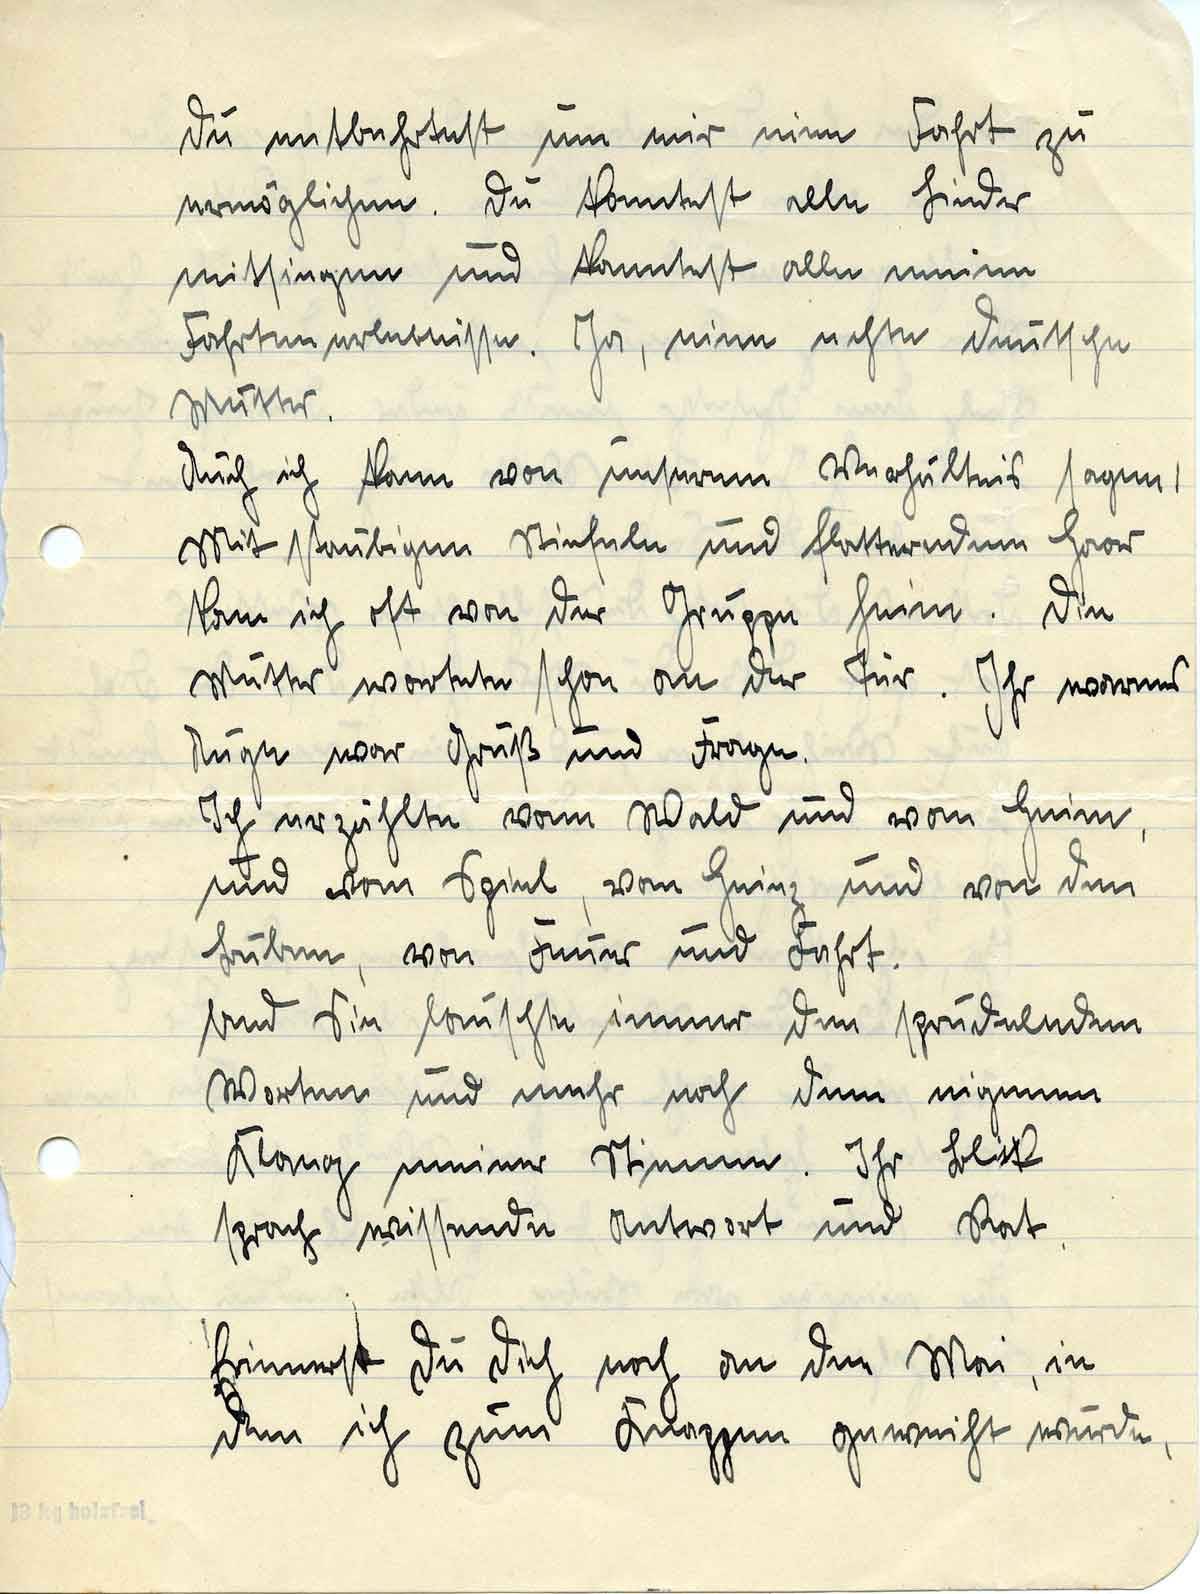 Du entbehrtest um mir eine Fahrt zu
ermöglichen. Du konntest alle Lieder
mitsingen und kanntest alle meine
Fahrtenerlebnisse. Ja, eine echte deutsche
Mutter.
Auch ich kann von unserem Verhältnis sagen!
Mit staubigen Stiefeln und flatterndem Haar
kam ich oft von der Gruppe heim. Die
Mutter wartete schon an der Tür. Ihr warmes
Auge war Gruß und Frage.
Ich erzählte vom Wald und vom Heim,
und vom Spiel, vom Heinz und von den
Buben, von Feuer und Fahrt.
Und Sie lauschte immer den sprudelnden
Worten und mehr noch dem eigenen
Klang meiner Stimme. Ihr Blick
sprach wissende Antwort und Rat.
Erinnerst Du Dich noch an den Mai, in
dem ich zum Knappen geweiht wurde,